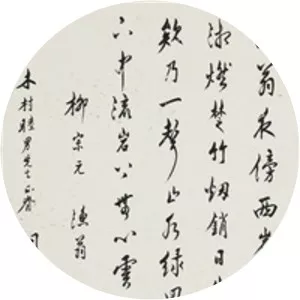 翁夜傍西岩
湘燃楚竹烟銷日
欸乃一聲山水綠回
下中流岩上無心雲
柳宗元 漁翁
木村睦男先生正